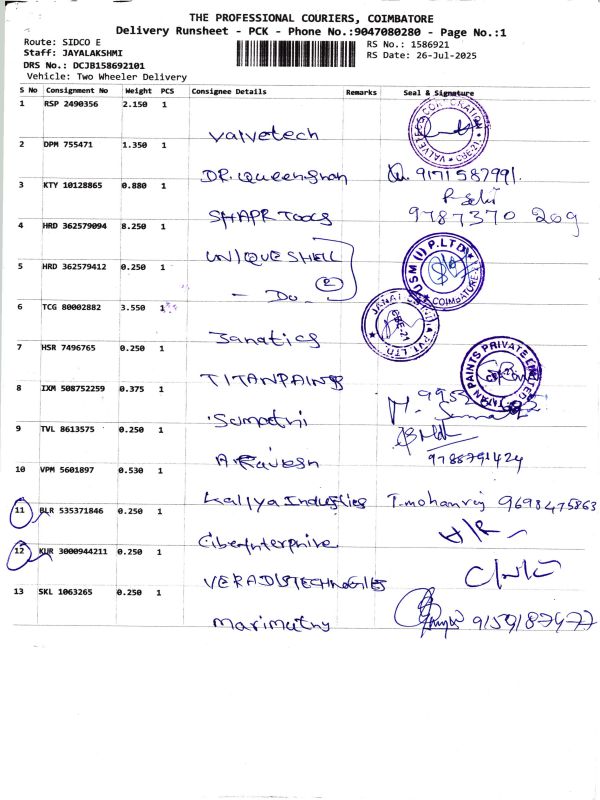 THE PROFESSIONAL COURIERS, COIMBATORE
Delivery Runsheet - PCK - Phone No.:9047080280 - Page No.:1
Route: SIDCO E
RS No.: 1586921
Staff: JAYALAKSHMI
RS Date: 26-Jul-2025
DRS No.: DCJB158692101
Vehicle: Two Wheeler Delivery
S No Consignment No Weight PCS Consignee Details Remarks Seal & Signature
1 RSP 2490356 2.150 1
Valvetech
2 DPM 755471 1.350 1
DR. Queenshan 9171587991.
3 KTY 10128865 0.880 1
SHAPR TOOLS 9787370 209
4 HRD 362579094 8.250 1
UNIQUE SHELL
USM (I) P.LTD
COIMBATORE
5 HRD 362579412 0.250 1
- Do - 2
6 TCG 80002882 3.550 1
Janatics
7 HSR 7496765 0.250 1
TITANPAINTS
TITAN PAINTS PRIVATE LIMITED
8 IXM 508752259 0.375 1
Sumathi
9 TVL 8613575 0.250 1
9788791424
10 VPM 5601897 0.530 1
Kaliya Industries T.mohanraj 9698475863
11 BLR 535371846 0.250 1
12 KUR 3000944211 0.250 1
13 SKL 1063265 0.250 1
Marimuthu 9159187477